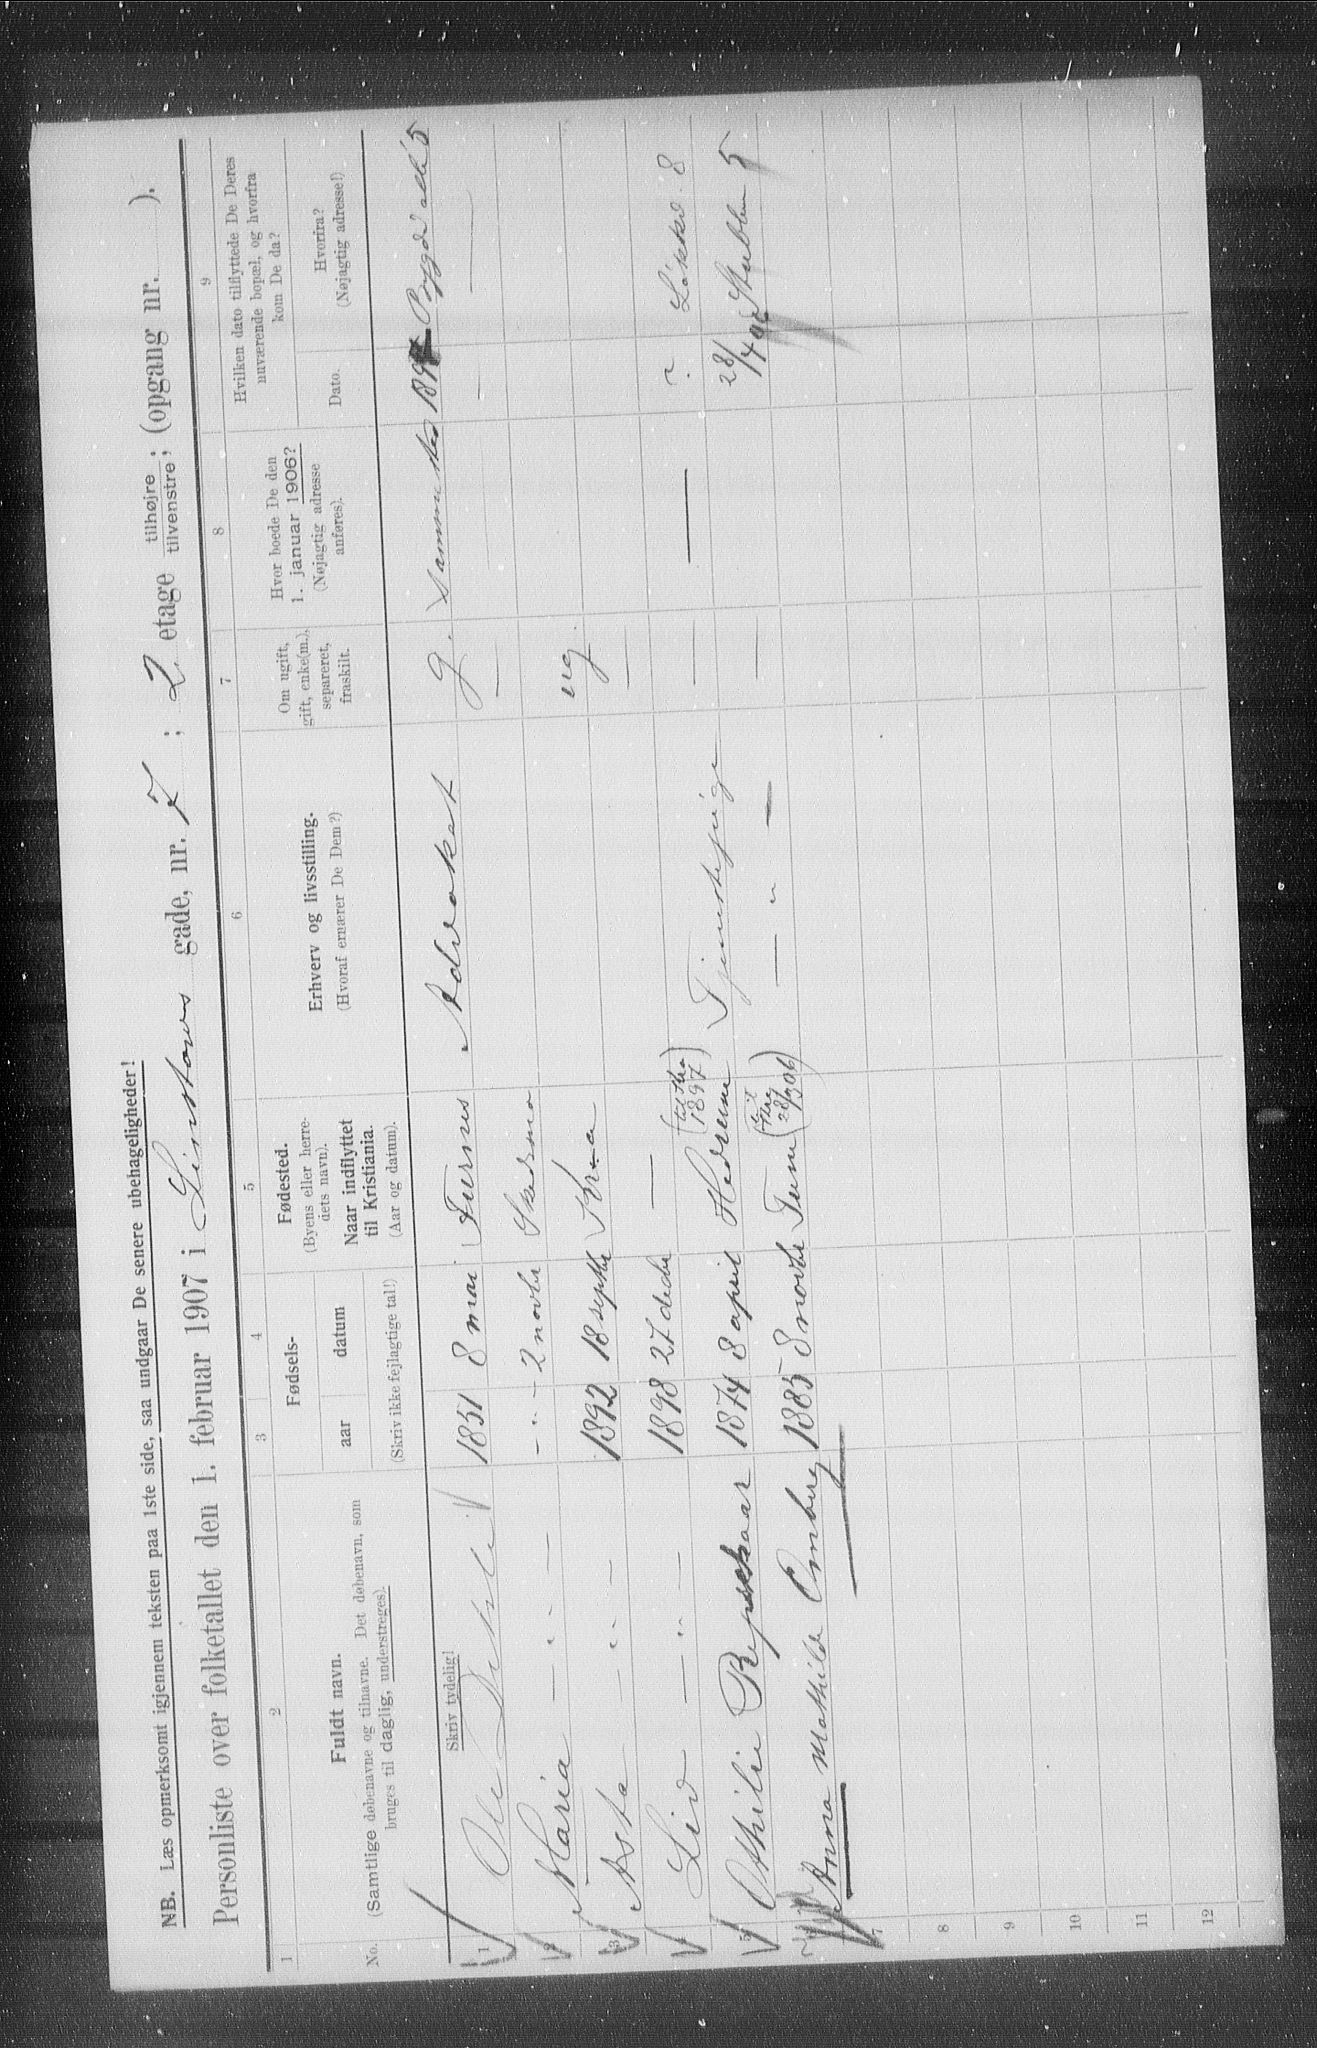 NB. Læs opmerksomt igjennem teksten paa 1ste side, saa undgaar De senere ubehageligheder!
Personliste over folketallet den 1. februar 1907 i Linstows gade, nr. 7 ; 2 etage tilhøjre ; tilvenstre ; (opgang nr. ).
1 2 3 4 5 6 7 8 9
No.
Fuldt navn.
(Samtlige døbenavne og tilnavne. Det døbenavn, som
bruges til daglig, understreges).
Fødsels-
aar datum
(Skriv ikke fejlagtige tal!)
Fødested.
(Byens eller herre-
dets navn).
Naar indflyttet
til Kristiania.
(Aar og datum).
Erhverv og livsstilling.
(Hvoraf ernærer De Dem?)
Om ugift,
gift, enke(m.),
separeret,
fraskilt.
Hvor boede De den
1. januar 1906?
(Nøjagtig adresse
anføres).
Hvilken dato tilflyttede De Deres
nuværende bopæl, og hvorfra
kom De da?
Dato.
Hvorfra?
(Nøjagtig adresse!)
Skriv tydelig!
1 Ole 1851 8 mai Furnes Advokat g. Samme sted Bygdø allé 5
2 Maria — " — — " — 2 novbr Skedsmo — — — —
3 Asta — " — 1892 18 septbr Kra ug.
4 Liv — " — 1898 27 decbr — —
5 Othilie 1874 8 april Hedrum (til Kra 1897) Tjenestepige — — ? Løkkev. 8
6 Anna Mathilde Omberg 1885 8 novbr Tune (til Kra 28/3 06) — " — — 28/4 06 Stubben 5
7
8
9
10
11
12